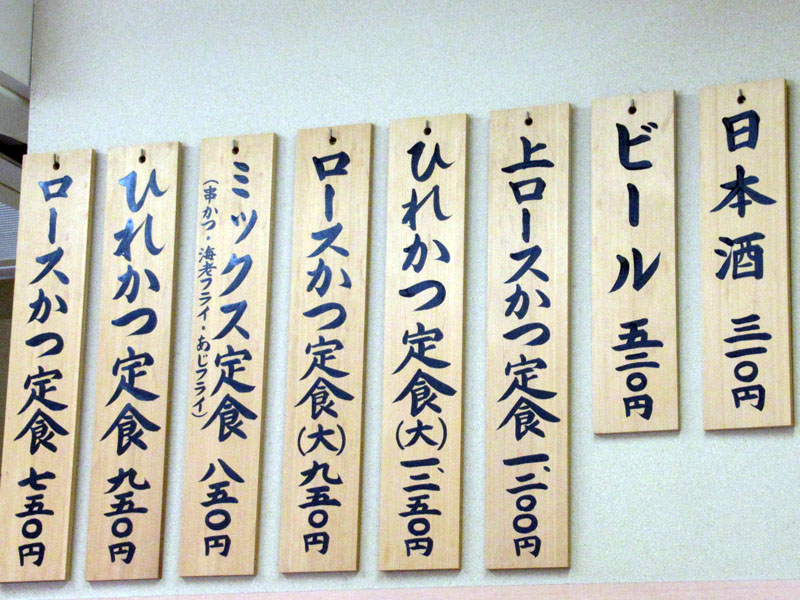 日本酒 三一〇円
ビール 五二〇円
上ロースかつ定食 一、二〇〇円
ひれかつ定食(大) 一、二五〇円
ロースかつ定食(大) 九五〇円
ミックス定食 八五〇円
(串かつ・海老フライ・あじフライ)
ひれかつ定食 九五〇円
ロースかつ定食 七五〇円